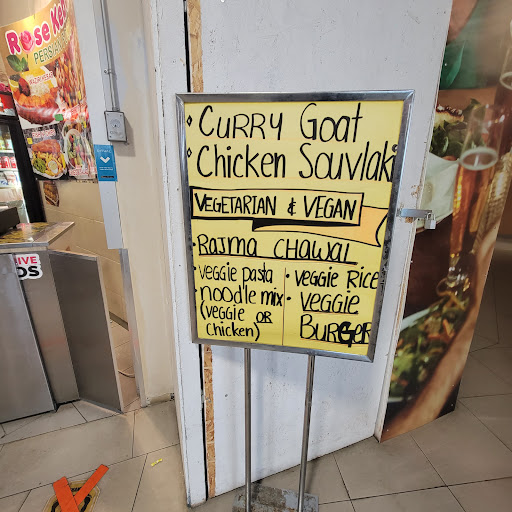 Rose Ke
PERSI
• CURRY Goat
• Chicken Souvlaki
VEGETARIAN & VEGAN
• RAJMA CHAWAL
• veggie pasta
• noodle mix
(veggie OR
chicken)
• VEGGIE RICE
• VEGGIE
BURGER
LIVE